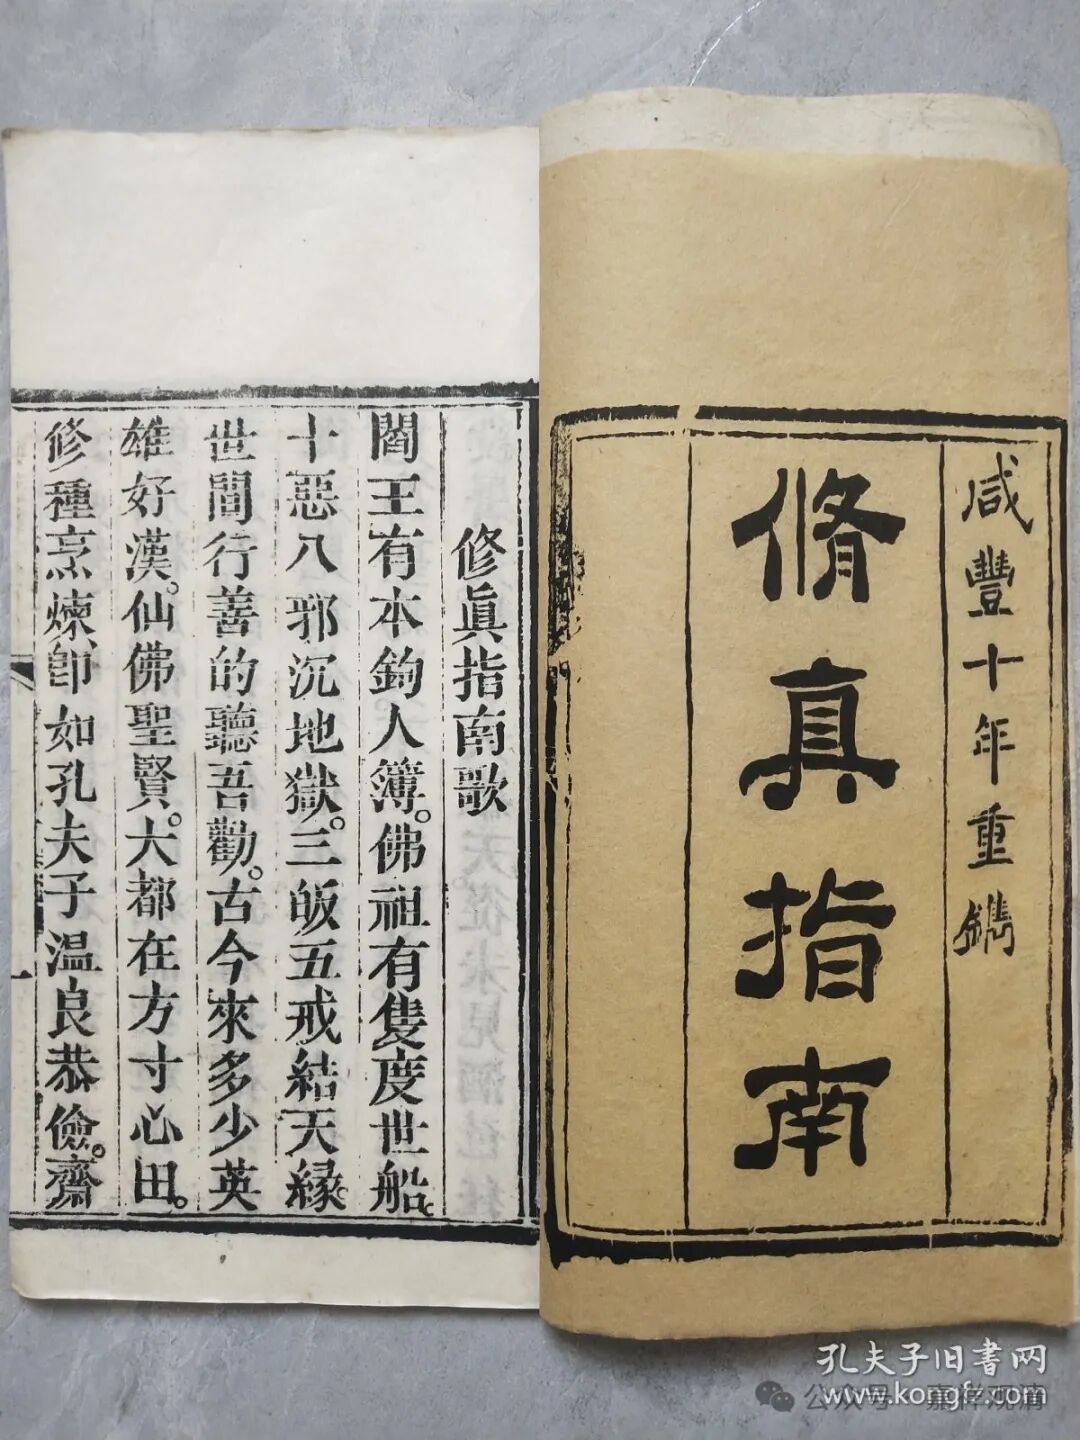 咸豐十年重鐫
脩真指南
修眞指南歌
閻王有本鈎人簿。佛祖有隻度世船。
十惡八邪沉地獄。三皈五戒結天緣。
世間行善的聽吾勸。古今來多少英
雄好漢。仙佛聖賢。大都在方寸心田。
修種烹煉、即如孔夫子温良恭儉。齋
一
孔夫子旧书网
www.kongfz.com
公众号·嘉祥观漪